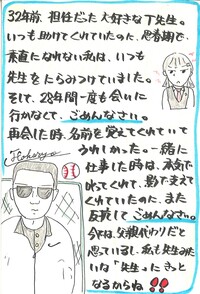 32年前、担任だった大好きなT先生。
いつも助けてくれていたのに、思春期で、
素直になれない私は、いつも
先生をにらみつけていました。
そして、28年間一度も会いに
行かなくて、ごめんなさい。
再会した時、名前を覚えてくれていて
うれしかった。一緒に
仕事した時は、本気で
叱ってくれて、影で支えて
くれていたのに、また
反抗してごめんなさい。
今では、父親代わりだと
思っているし、私も先生みた
いな「先生」に きっと
なるからね!!